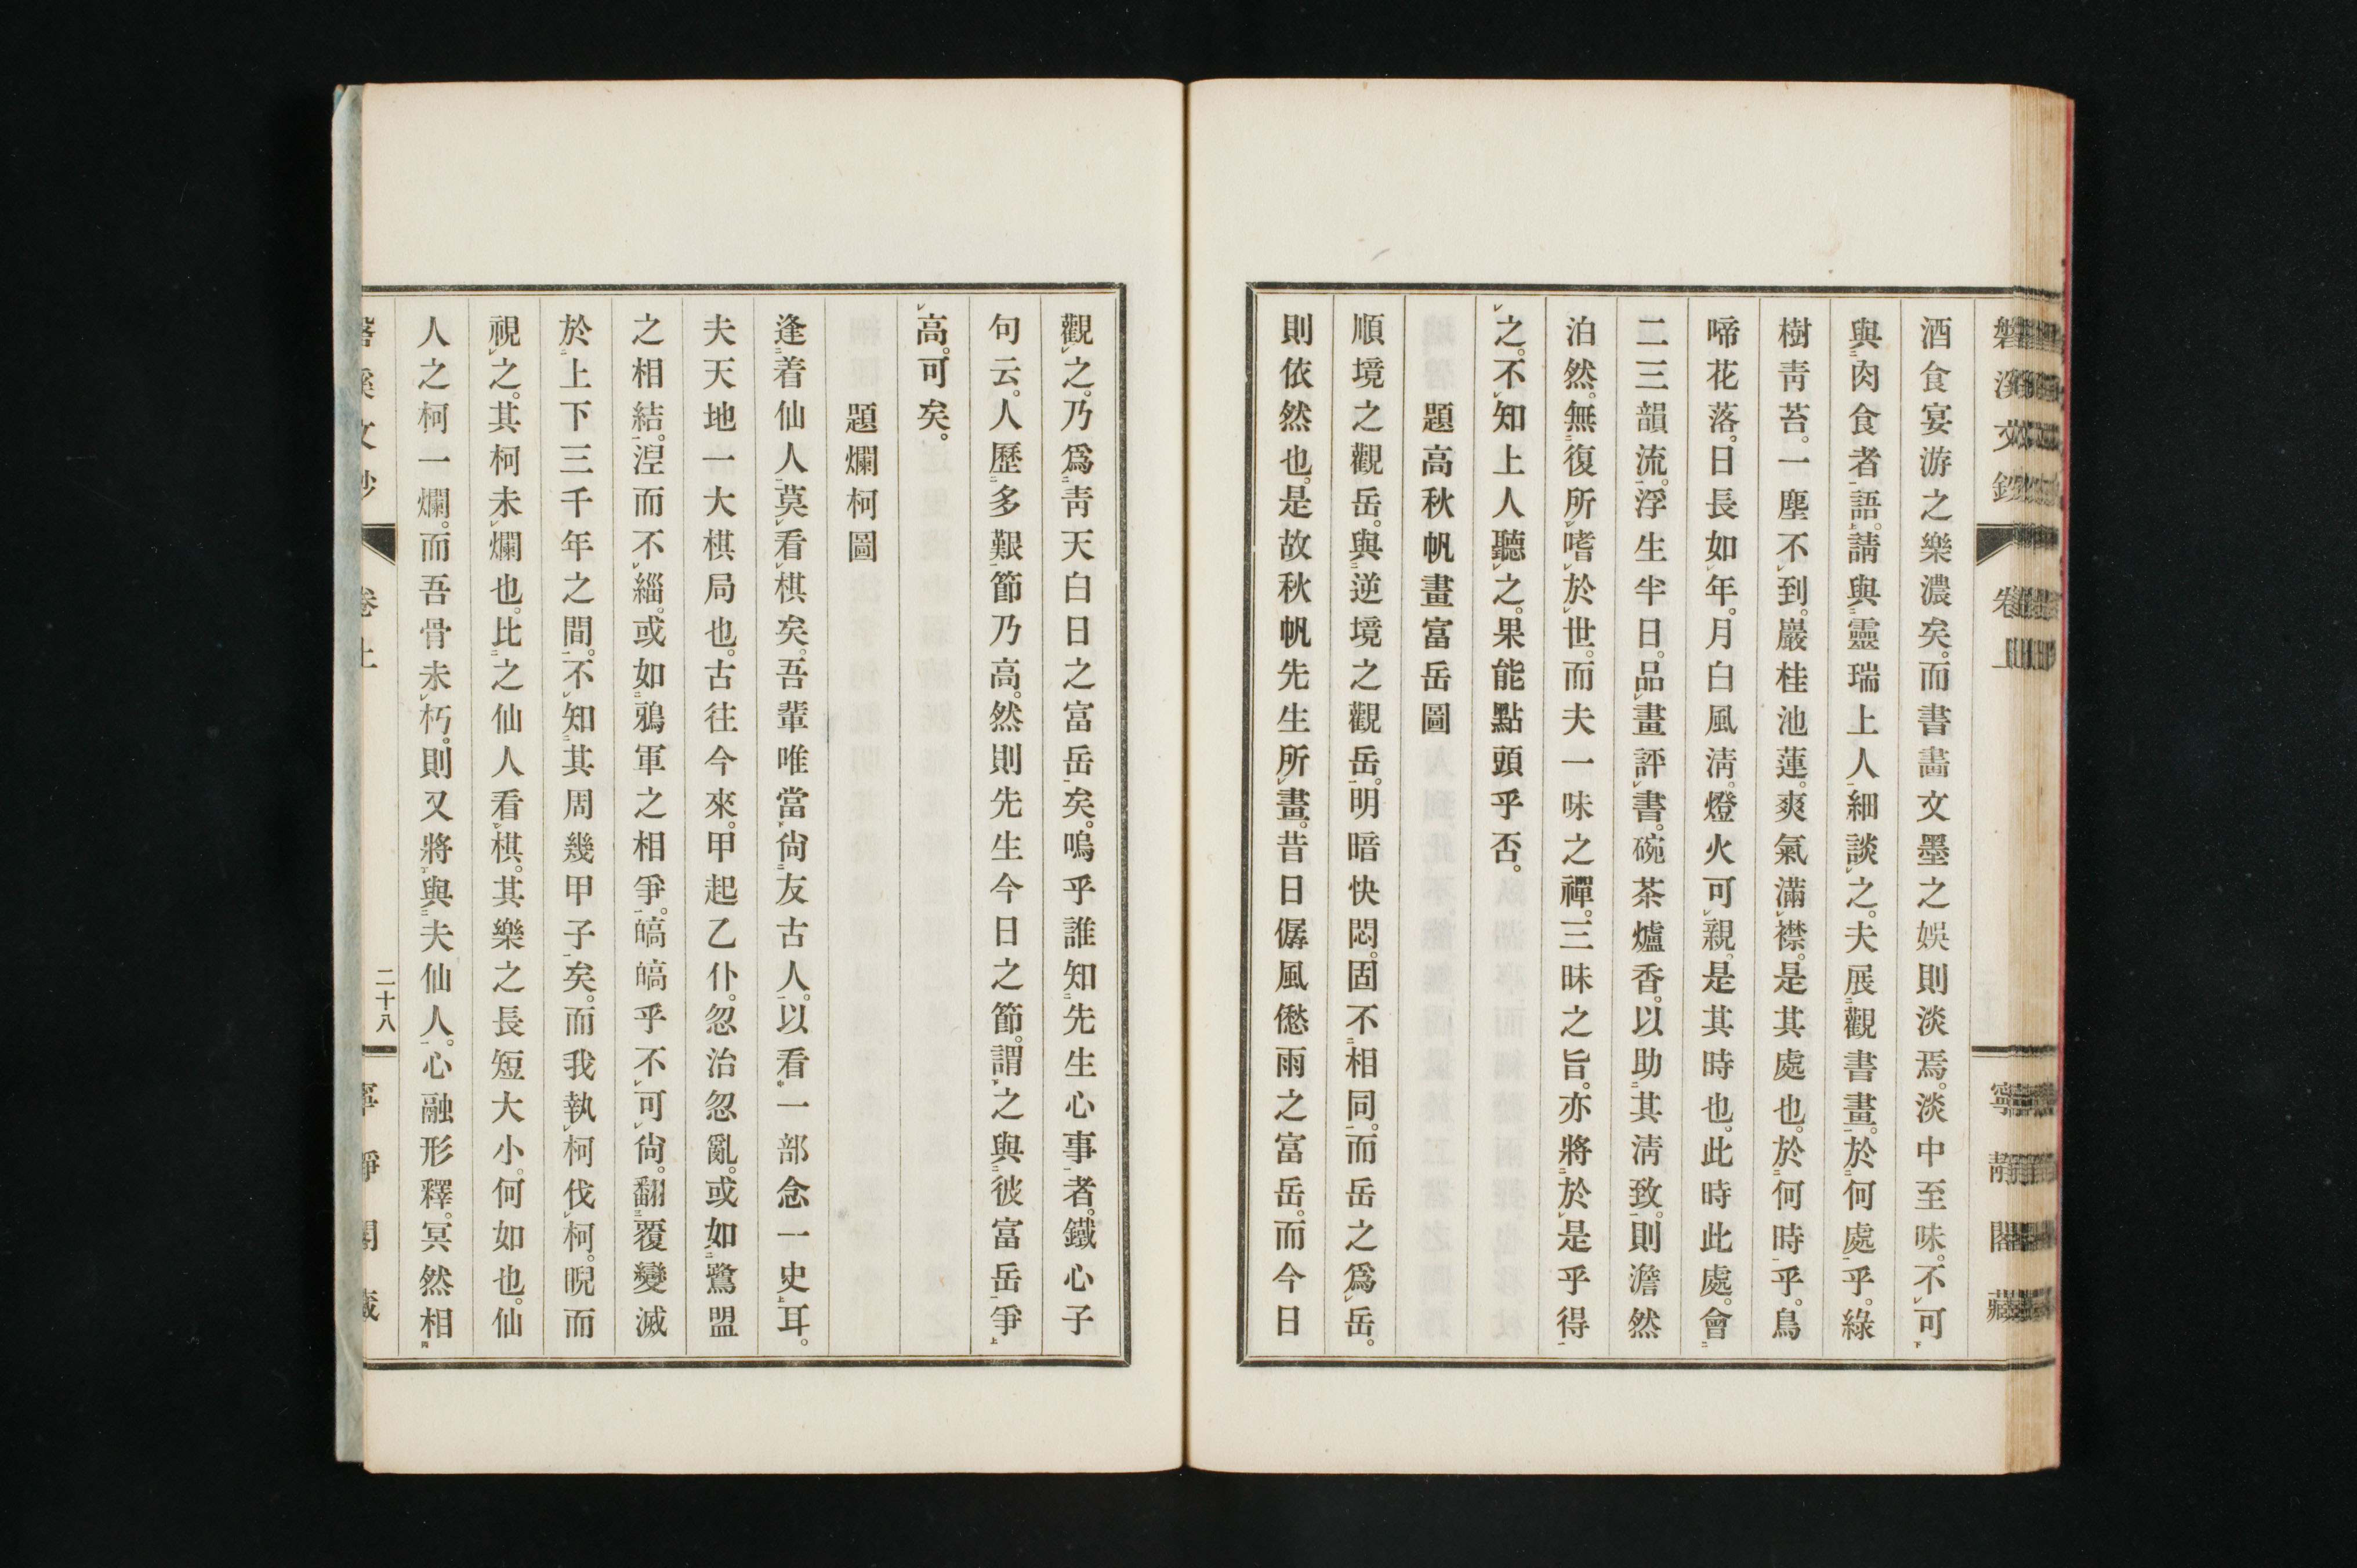 磐溪文鈔 卷上 寧靜閣藏
酒食宴游之樂濃矣。而書畵文墨之娛則淡焉。淡中至味。不可
與肉食者語。請與靈瑞上人細談之。夫展觀書畫。於何處乎。綠
樹靑苔。一塵不到。巖桂池蓮。爽氣滿襟。是其處也。於何時乎。鳥
啼花落。日長如年。月白風淸。燈火可親。是其時也。此時此處。會
二三韻流。浮生半日。品畫評書。碗茶爐香。以助其淸致。則澹然
泊然。無復所嗜於世。而夫一味之禪。三昧之旨。亦將於是乎得
之。不知上人聽之。果能點頭乎否。
題高秋帆畫富岳圖
順境之觀岳。與逆境之觀岳。明暗快悶。固不相同。而岳之爲岳。
則依然也。是故秋帆先生所畫。昔日僝風僽雨之富岳。而今日
觀之。乃爲靑天白日之富岳矣。嗚乎誰知先生心事者。鐵心子
句云。人歷多艱節乃高。然則先生今日之節。謂之與彼富岳爭
高。可矣。
題爛柯圖
逢着仙人莫看棋矣。吾輩唯當尙友古人。以看一部念一史耳。
夫天地一大棋局也。古往今來。甲起乙仆。忽治忽亂。或如鷺盟
之相結。涅而不緇。或如鴉軍之相爭。皜皜乎不可尙。翻覆變滅
於上下三千年之間。不知其周幾甲子矣。而我執柯伐柯。睨而
視之。其柯未爛也。比之仙人看棋。其樂之長短大小。何如也。仙
人之柯一爛。而吾骨未朽。則又將與夫仙人。心融形釋。冥然相
磐溪文鈔 卷上 二十八 寧靜閣藏